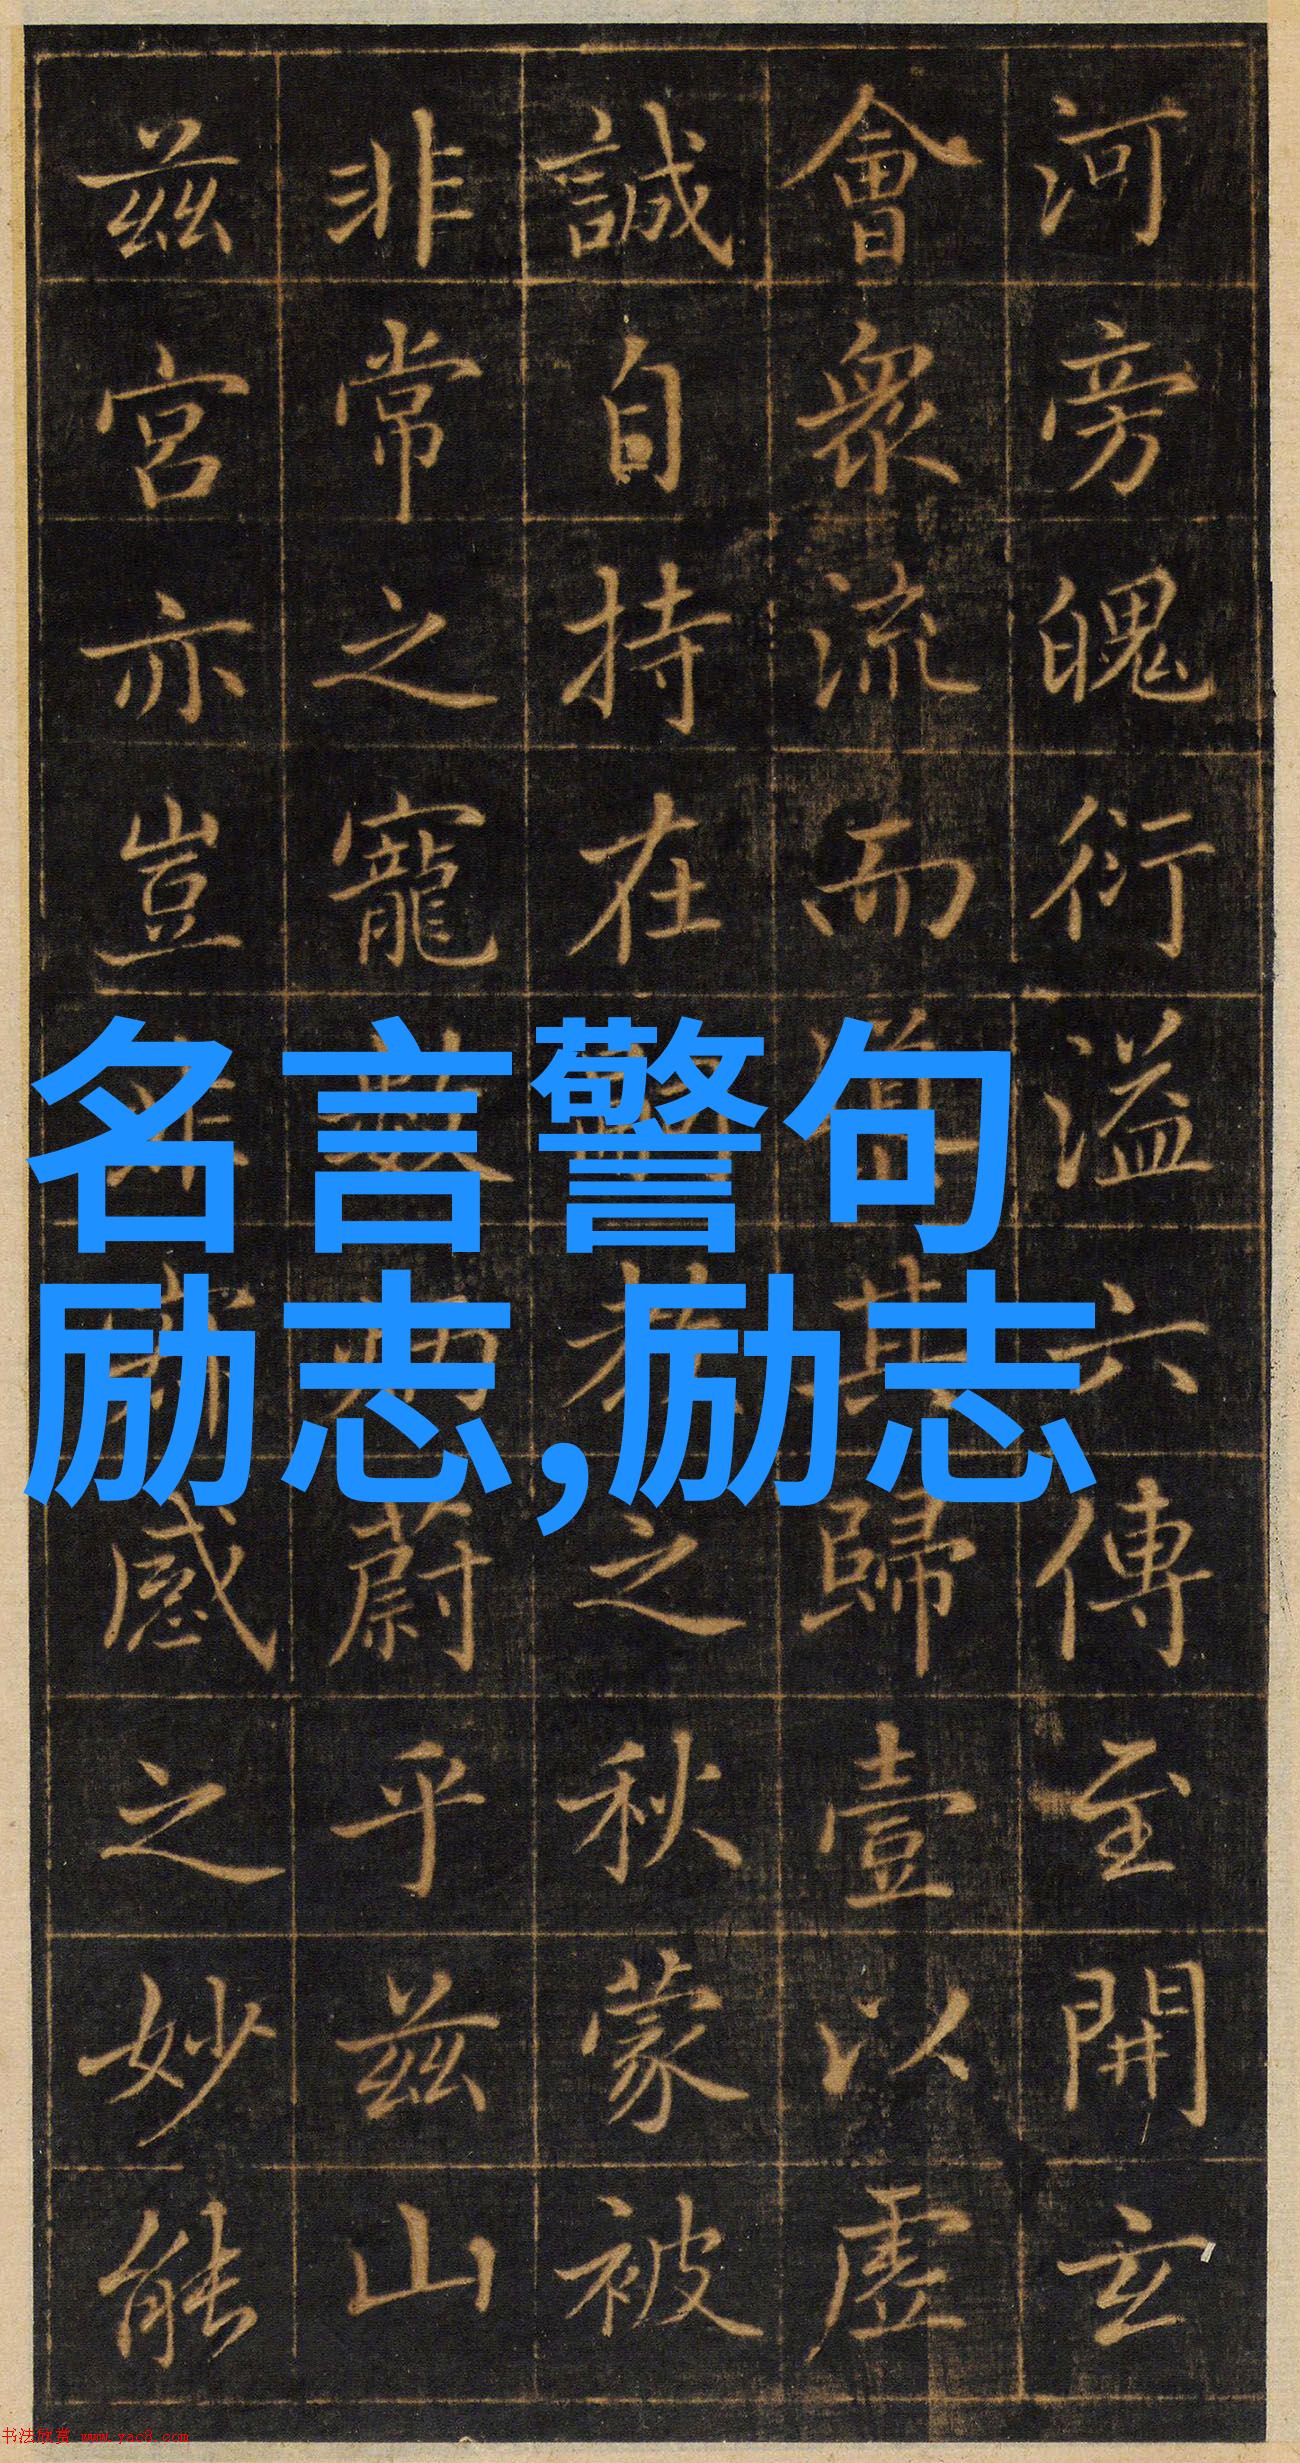 河旁魄衍溢六傳至開玄
會衆流而其歸壹以虛
誠自持在之秋蒙被
非常之寵數炳蔚乎兹山
兹宮亦豈非感之妙能
名言警句
励志,励志
书法欣赏 www.yac8.com